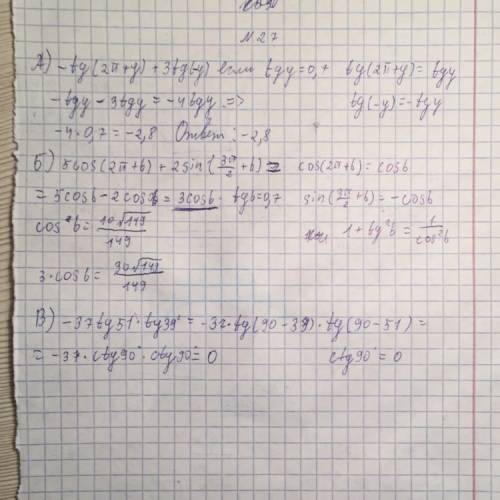 №27
А) -tg(2π+y) + 3tg(-y) если tgy=0,7 tg(2π+y)= tgy
-tgy - 3tgy = -4tgy => tg(-y)=-tgy
-4·0,7 = -2,8 Ответ: -2,8
Б) 5cos(2π+b) + 2sin(3π/2+b) = cos(2π+b)= cosb
= 5cosb - 2cosb = 3cosb · tgb=0,7 sin(3π/2+b) = -cosb
cos²b = 10√149/149 1+tg²b = 1/cos²b
3·cosb = 30√149/149
В) -37tg51°·tg39° = -37·tg(90-39)·tg(90-51) =
= -37·ctg90°·ctg90°= 0 ctg90° = 0